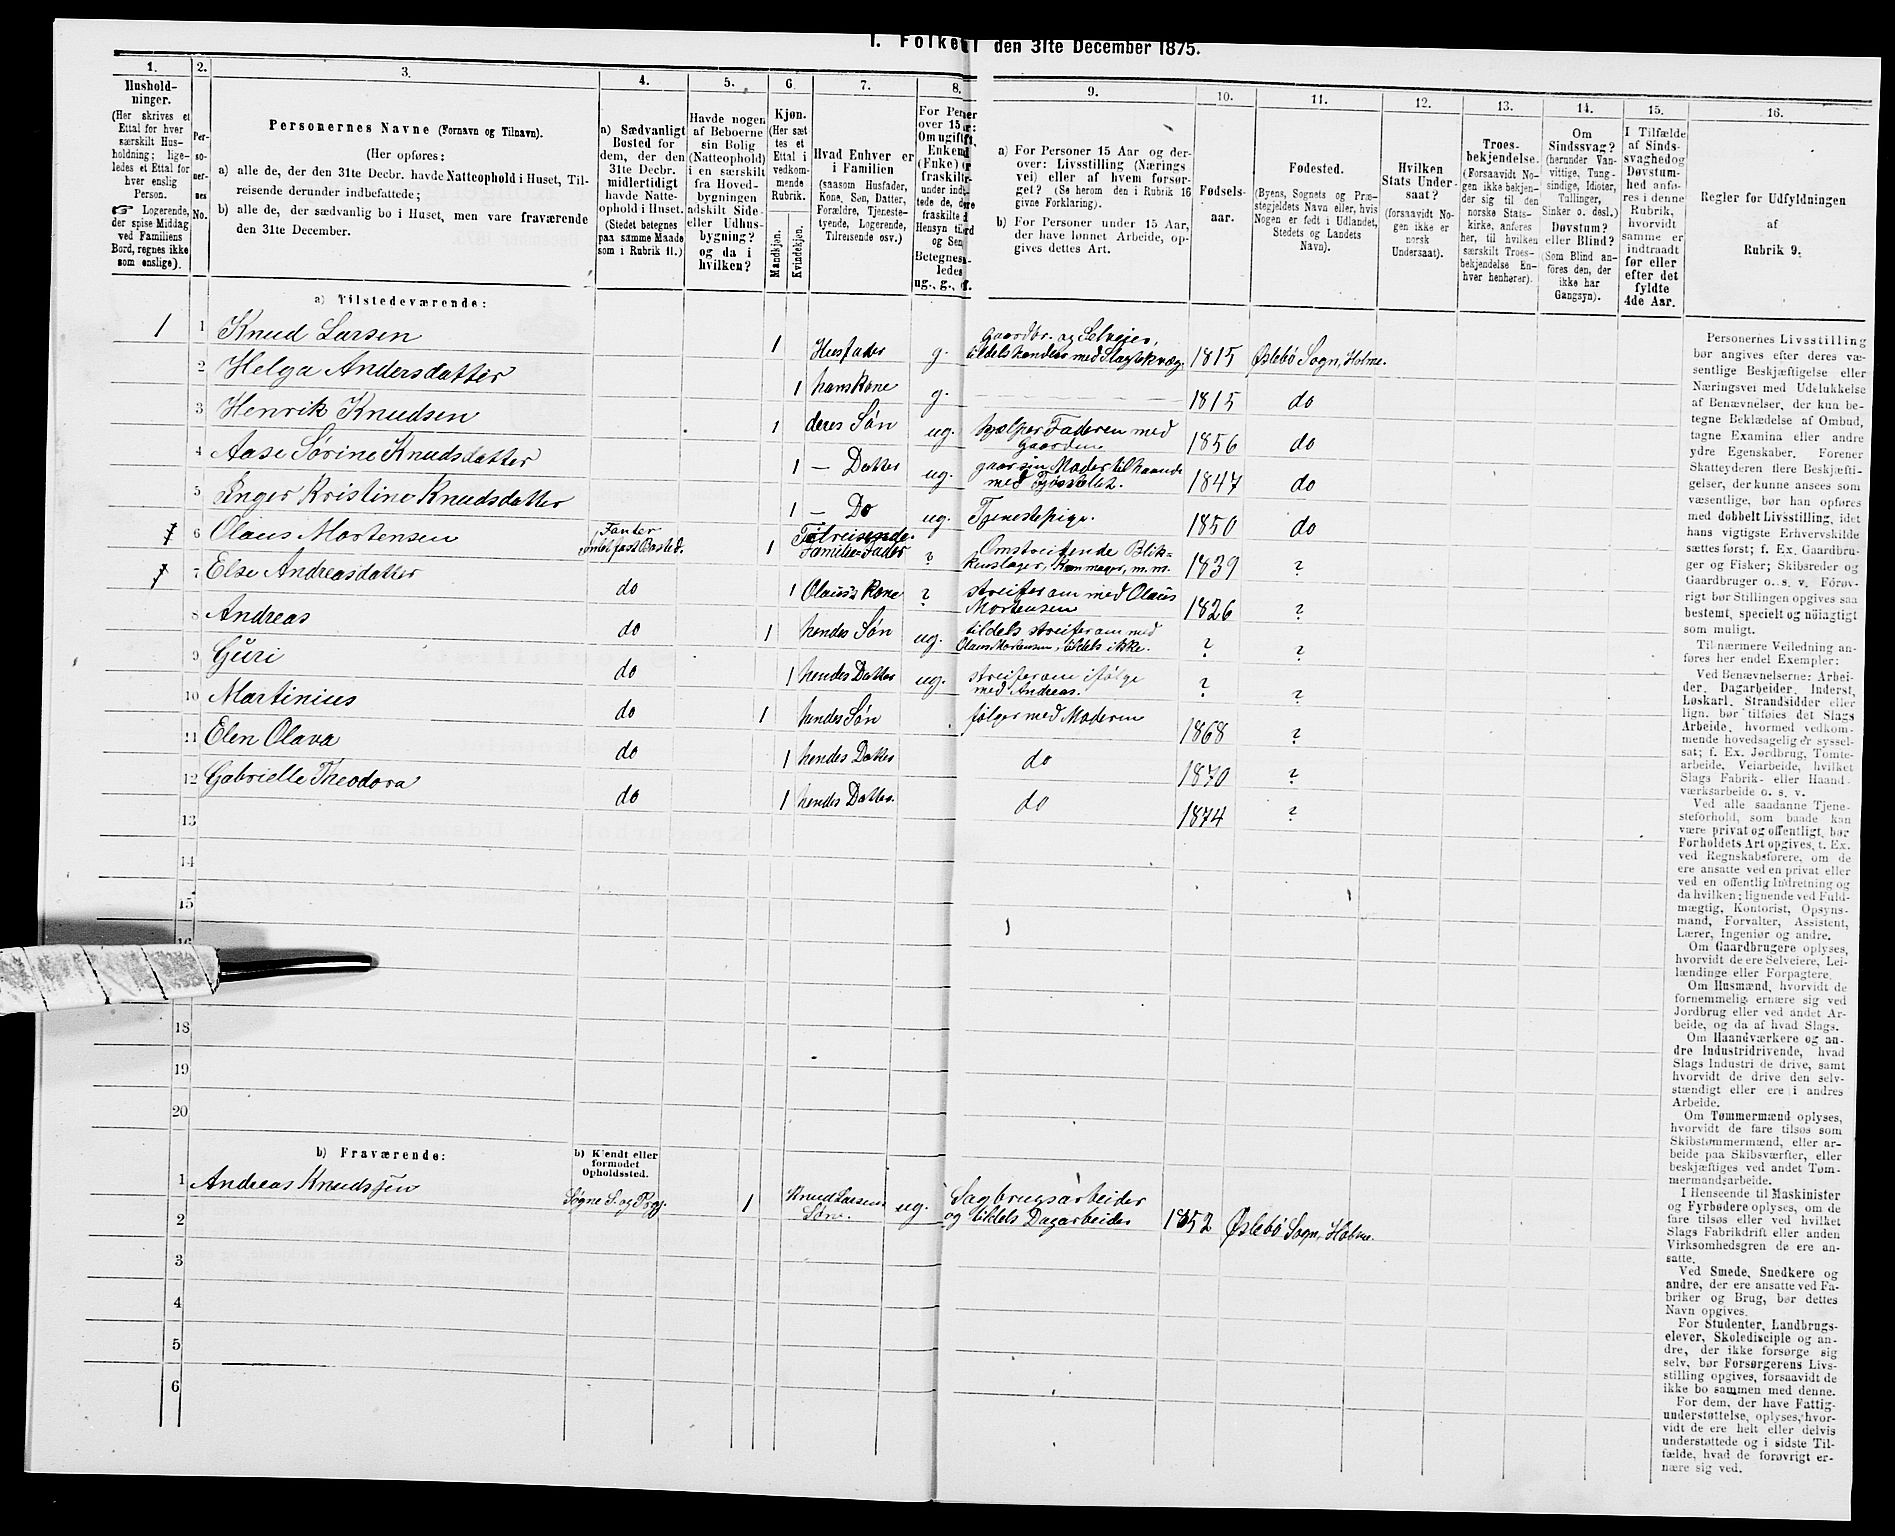 I. Folketæl
den 31te December 1875.
1.
Hushold-
ninger.
(Her skrives et
Ettal for hver
særskilt Hus-
holdning; lige-
ledes et Ettal for
hver enslig
Person.
☞ Logerende,
der spise Middag
ved Familiens
Bord, regnes ikke
som enslige).
2.
Per-
so-
ner-
nes
No.
3.
Personernes Navne (Fornavn og Tilnavn).
(Her opføres:
a) alle de, der den 31te Decbr. havde Natteophold i Huset, Til-
reisende derunder indbefattede;
b) alle de, der sædvanlig bo i Huset, men vare fraværende
den 31te December.
4.
a) Sædvanligt
Bosted for
dem, der den
31te Decbr.
midlertidigt
havde Natte-
ophold i Huset.
(Stedet betegnes
paa samme Maade
som i Rubrik 11.)
5.
Havde nogen
af Beboerne
sin Bolig
(Natteophold)
i en særskilt
fra Hoved-
bygningen
adskilt Side-
eller Udhus-
bygning?
og da i
hvilken?
6.
Kjøn.
(Her sæt
tes et
Ettal i
vedkom-
mende
Rubrik.
Mandkjøn.
Kvindekjøn.
7.
Hvad Enhver er
i Familien
(saasom Husfader,
Kone, Søn, Datter,
Forældre, Tjeneste-
tyende, Logerende,
Tilreisende osv.)
8.
For Personer
over 15 Aar:
Om ugift,
Enkemand
(Enke) eller
fraskilt
under
tede de, dere
fraskilte i
Hensyn til
og Seng.
Betegnes
ledes
ug., g., e., f.
9.
a) For Personer 15 Aar og der-
over: Livsstilling (Nærings
vei) eller af hvem forsør-
get? (Se herom den i Rubrik 16
givne Forklaring).
b) For Personer under 15 Aar,
der have lønnet Arbeide, op-
gives dettes Art.
10.
Fødsels-
aar.
11.
Fødested.
(Byens, Sognets og Præ-
stegjeldets Navn eller, hvis
Nogen er født i Udlandet,
Stedets og Landets
Navn).
12.
Hvilken
Stats Under-
saat?
(forsaavidt No-
gen ikke er
norsk
Undersaat).
13.
Troes-
bekjendelse.
(Forsaavidt No-
gen ikke bekjen-
der sig til den
norske Stats-
kirke, anføres
her, til hvilken
særskilt Troes-
bekjendelse En-
hver henhører).
14.
Om
Sindssvag?
(herunder Van-
vittige, Tung-
sindige, Idioter,
Tullinger,
Sinker o. desl.)
Døvstum?
eller Blind?
(Som Blind an-
føres den, der
ikke har
Gangsyn).
15.
I Tilfælde
af Sinds-
svaghed og
Døvstum-
hed anfø-
res i denne
Rubrik,
hvorvidt
samme er
indtraadt
før eller
efter det
fyldte
4de Aar.
16.
Regler for Udfyldningen
af
Rubrik 9.
a) Tilstedeværende:
1 1 Knud Larsen 1 Husfader g. Gaardbr. og Selveier,
tildels handler med Slagtekvæg. 1815 Øslebø Sogn, Holme.
2 Helga Andersdatter 1 hans Kone g. 1815 do
3 Henrik Knudsen 1 deres Søn ug. hjælper Faderen med
Gaarden. 1856 do
4 Aase Sørine Knudsdatter 1 — Datter ug. gaar sin Moder tilhaande
med Fjøsstellet. 1847 do
5 Inger Kristine Knudsdatter 1 — Do ug. Tjenestepige. 1850 do
6 Olaus Mortensen Fanter
intet fast Bosted. 1 Tilreisende.
Familie-Fader ? Omstreifende Blik-
kenslager, Kammager, m.m. 1839 ?
7 Else Andreasdatter do 1 Olaus's Kone ? streifer om med Olaus
Mortensen 1826 ?
8 Andreas do 1 hendes Søn ug. tildels streifer om med
Olaus Mortensen, tildels ikke. ? ?
9 Guri do 1 hendes Datter ug. streifer om ifølge
med Andreas. ? ?
10 Martinius do 1 hendes Søn følger med Moderen 1868 ?
11 Elen Olava do 1 hendes Datter do 1870 ?
12 Gabrielle Theodora do 1 hendes Datter. do 1874 ?
13
14
15
16
18
19
20
b) Fraværende:
b) Kjendt eller
formodet
Opholdssted.
1 Andreas Knudsen Søgne S. og Prgj. 1 Knud Larsens
Søn. ug. Sagbrugsarbeider
og tildels Dagarbeider 1852 Øslebø Sogn, Holme.
2
3
4
5
6
Personernes Livsstilling
bør angives efter deres væ-
sentlige Beskjæftigelse eller
Næringsvei med Udelukkelse
af Benævnelser, der kun be-
tegne Beklædelse af Ombud,
tagne Examina eller andre
ydre Egenskaber. Forener
Skatteyderen flere Beskjæfti-
gelser, der kunne ansees som
væsentlige, bør han opføres
med dobbelt Livsstilling, idet
hans vigtigste Erhvervskilde
sættes først; f. Ex. Gaardbru-
ger og Fisker; Skibsreder og
Gaardbruger o. s. v. Forøv-
rigt bør Stillingen opgives saa
bestemt, specielt og nöiagtigt
som muligt.
Til nærmere Veiledning an-
føres her endel Exempler:
Ved Benævnelserne: Arbei-
der, Dagarbeider, Inderst,
Løskarl, Strandsidder eller
lign. bør tilføies det Slags
Arbeide, hvormed vedkom-
mende hovedsagelig er syssel-
sat; f. Ex. Jordbrug, Tomte-
arbeide, Veiarbeide, hvilket
Slags Fabrik- eller Haand-
værksarbeide o. s. v.
Ved alle saadanne Tjene-
steforhold, som baade kan
være privat og offentligt, bør
Forholdets Art opgives, t. Ex.
ved Regnskabsførere, om de
ere ansatte ved en privat eller
ved en offentlig Indretning og
da hvilken; lignende ved Fuld-
mægtig, Kontorist, Opsyns-
mand, Forvalter, Assistent,
Lærer, Ingeniør og andre.
Om Gaardbrugere oplyses,
hvorvidt de ere Selveiere, Lei-
lændinge eller Forpagtere.
Om Husmænd, hvorvidt de
fornemmelig ernære sig ved
Jordbrug eller ved andet Ar-
beide, og da af hvad Slags.
Om Haandværkere og an-
dre Industridrivende, hvad
Slags Industri de drive, samt
hvorvidt de drive den selv-
stændigt eller ere i andres
Arbeide.
Om Tømmermænd oplyses,
hvorvidt de fare tilsøs som
Skibstømmermænd, eller ar-
beide paa Skibsværfter, eller
beskjæftiges ved andet Tøm-
mermandsarbeide.
I Henseende til Maskinister
og Fyrbødere oplyses, om de
fare tilsøs eller ved hvilket
Slags Fabrikdrift eller anden
Virksomhedsgren de ere an-
satte.
Ved Smede, Snedkere og
andre, der ere ansatte ved Fa-
briker og Brug, bør dettes
Navn opgives.
For Studenter, Landbrugs-
elever, Skoledisciple og an-
dre, der ikke forsørge sig
selv, bør Forsørgerens Livs-
stilling opgives, forsaavidt de
ikke bo sammen med denne.
For dem, der have Fattig-
understøttelse, oplyses, hvor-
vidt de ere helt eller delvis
understøttede og i sidste Til-
fælde, hvad de forøvrigt er-
nære sig ved.